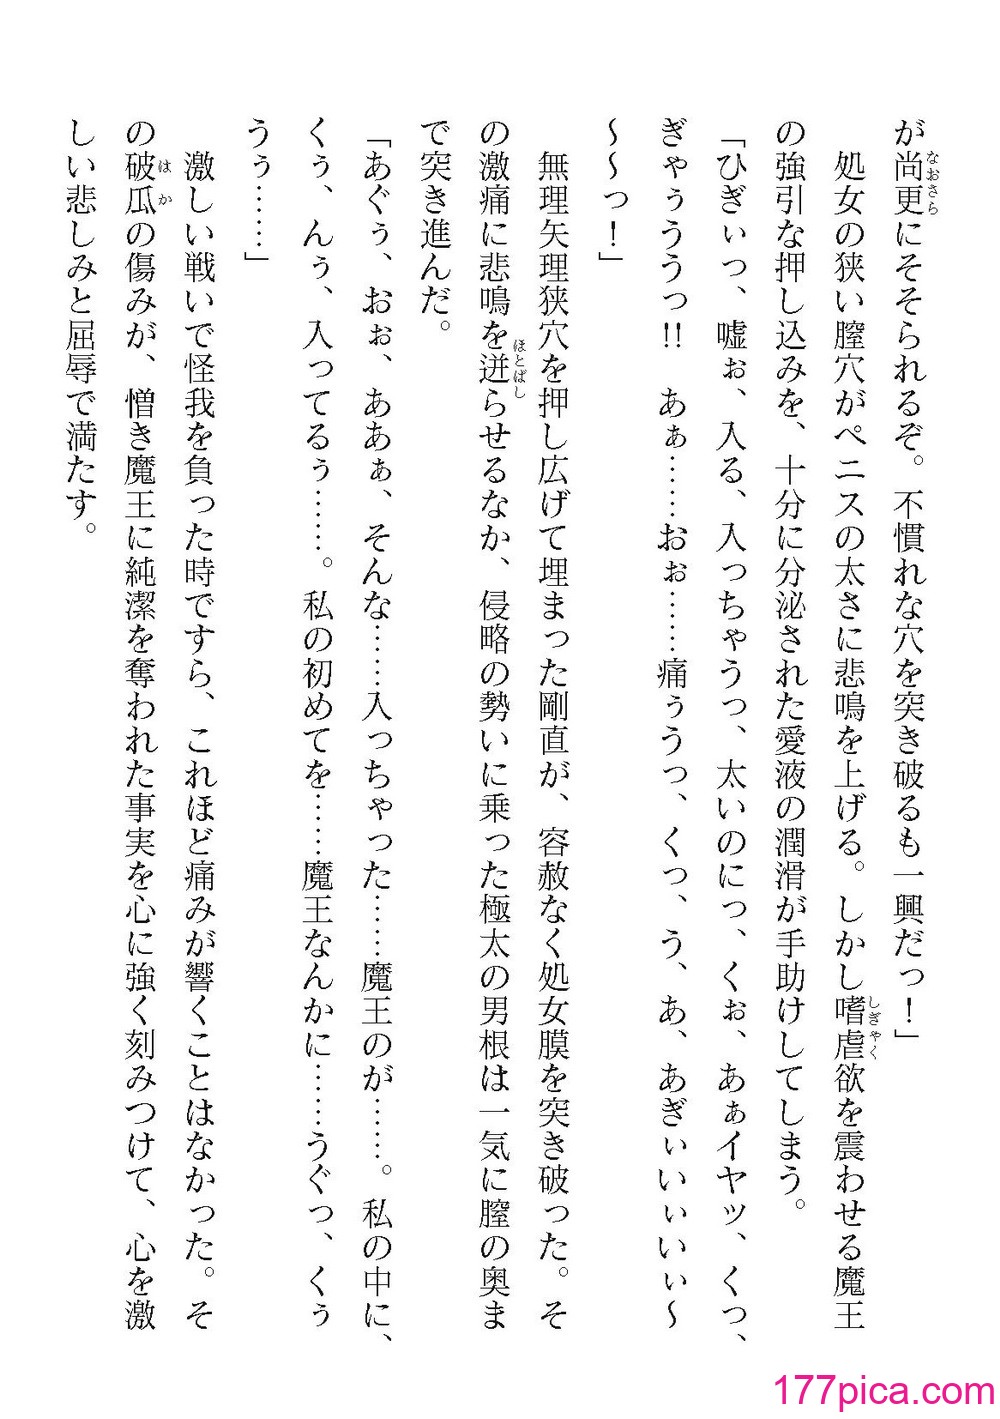 が尚更にそそられるぞ。不慣れな穴を突き破るも一興だっ！」
処女の狭い膣穴がペニスの太さに悲鳴を上げる。しかし嗜虐欲を震わせる魔王
の強引な押し込みを、十分に分泌された愛液の潤滑が手助けしてしまう。
「ひぎぃっ、嘘ぉ、入る、入っちゃうっ、太いのにっ、くぉ、あぁイヤッ、くっ、
ぎゃぅううっ!!　あぁ……おぉ……痛ぅうっ、くっ、う、あ、あぎぃいぃいぃ～
～～っ！」
無理矢理狭穴を押し広げて埋まった剛直が、容赦なく処女膜を突き破った。そ
の激痛に悲鳴を迸らせるなか、侵略の勢いに乗った極太の男根は一気に膣の奥ま
で突き進んだ。
「あぐぅ、おぉ、ああぁ、そんな……入っちゃった……魔王のが……。私の中に、
くぅ、んぅ、入ってるぅ……。私の初めてを……魔王なんかに……うぐっ、くぅ
うぅ……」
激しい戦いで怪我を負った時ですら、これほど痛みが響くことはなかった。そ
の破瓜の傷みが、憎き魔王に純潔を奪われた事実を心に強く刻みつけて、心を激
しい悲しみと屈辱で満たす。
177pica.com